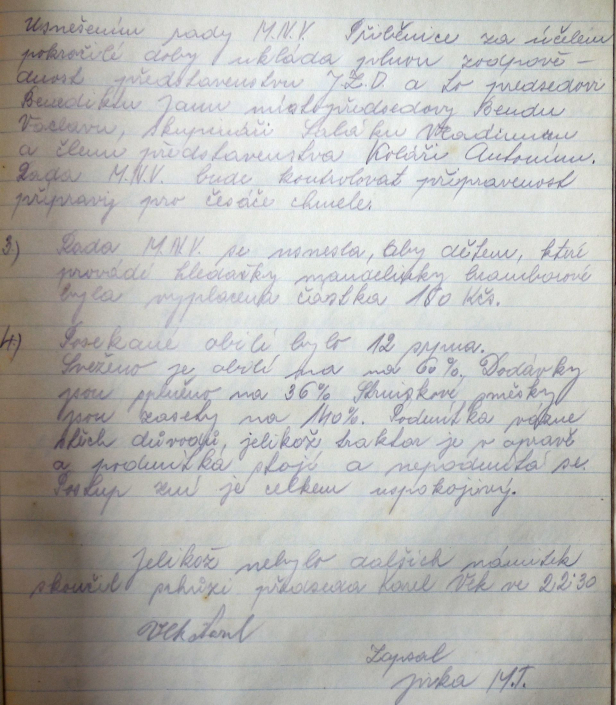 Usnešením rady M.N.V. Příběnice za účelem
pokročilé doby ukláda plnou zodpově-
dnost představenstvu J.Z.D. a to předsedovi
Benediktu Janu místopředsedovy Bendu
Václavu, skupináři Vladimíru
a členu představenstva Koláři Antonínu.
Rada M.N.V. bude kontrolovat připravenost
přípravy pro česáče chmele.
3) Rada M.N.V. se usnesla, aby dětem, které
provádí hledačky mandelinky bramborové
byla vyplacena částka 100 Kčs.
4) Posekané obilí bylo 12 srpna.
Sveženo je obilí na 60%. Dodávky
jsou splněno na 36% Strniskové směsky
jsou zasety na 140%. Podmítka vázne
důvodů, jelikož traktor je v opravě
a podmítka stojí a nepodmítá se.
Postup žní je celkem uspokojivý.
Jelikož nebylo dalších námitek
skončil schůzi předseda Karel Vlk ve 22:30
Vlk Karel
Zapsal
M.T.